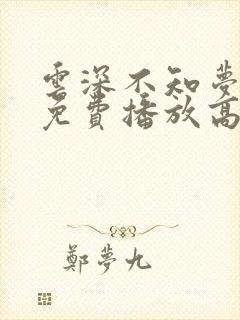 雲深不知夢
免費播放高
鄭夢九